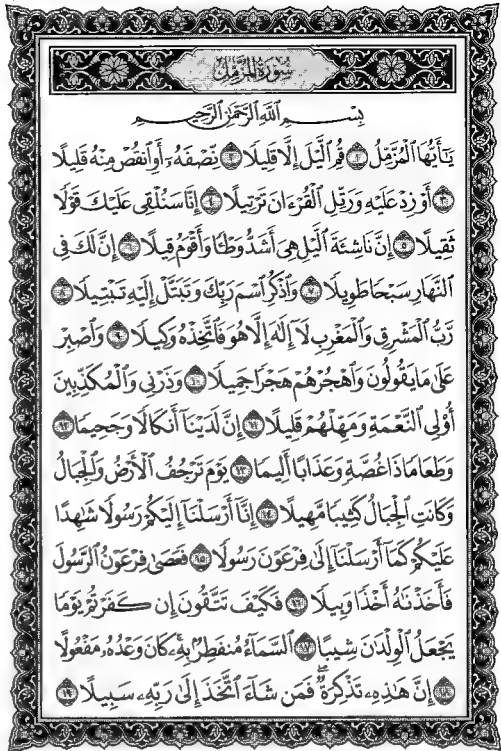 سُورَةُ الْمُزَّمِّلِ
بِسْمِ اللَّهِ الرَّحْمَٰنِ الرَّحِيمِ
يَٰٓأَيُّهَا ٱلۡمُزَّمِّلُ ١ قُمِ ٱلَّيۡلَ إِلَّا قَلِيلٗا ٢ نِّصۡفَهُۥٓ أَوِ ٱنقُصۡ مِنۡهُ قَلِيلًا
٣ أَوۡ زِدۡ عَلَيۡهِ وَرَتِّلِ ٱلۡقُرۡءَانَ تَرۡتِيلًا ٤ إِنَّا سَنُلۡقِي عَلَيۡكَ قَوۡلٗا
ثَقِيلًا ٥ إِنَّ نَاشِئَةَ ٱلَّيۡلِ هِيَ أَشَدُّ وَطۡـٔٗا وَأَقۡوَمُ قِيلًا ٦ إِنَّ لَكَ فِي
ٱلنَّهَارِ سَبۡحٗا طَوِيلٗا ٧ وَٱذۡكُرِ ٱسۡمَ رَبِّكَ وَتَبَتَّلۡ إِلَيۡهِ تَبۡتِيلٗا ٨
رَّبُّ ٱلۡمَشۡرِقِ وَٱلۡمَغۡرِبِ لَآ إِلَٰهَ إِلَّا هُوَ فَٱتَّخِذۡهُ وَكِيلٗا ٩ وَٱصۡبِرۡ
عَلَىٰ مَا يَقُولُونَ وَٱهۡجُرۡهُمۡ هَجۡرٗا جَمِيلٗا ١٠ وَذَرۡنِي وَٱلۡمُكَذِّبِينَ
أُوْلِي ٱلنَّعۡمَةِ وَمَهِّلۡهُمۡ قَلِيلًا ١١ إِنَّ لَدَيۡنَآ أَنكَالٗا وَجَحِيمٗا ١٢
وَطَعَامٗا ذَا غُصَّةٖ وَعَذَابًا أَلِيمٗا ١٣ يَوۡمَ تَرۡجُفُ ٱلۡأَرۡضُ وَٱلۡجِبَالُ
وَكَانَتِ ٱلۡجِبَالُ كَثِيبٗا مَّهِيلًا ١٤ إِنَّآ أَرۡسَلۡنَآ إِلَيۡكُمۡ رَسُولٗا شَٰهِدًا
عَلَيۡكُمۡ كَمَآ أَرۡسَلۡنَآ إِلَىٰ فِرۡعَوۡنَ رَسُولٗا ١٥ فَعَصَىٰ فِرۡعَوۡنُ ٱلرَّسُولَ
فَأَخَذۡنَٰهُ أَخۡذٗا وَبِيلٗا ١٦ فَكَيۡفَ تَتَّقُونَ إِن كَفَرۡتُمۡ يَوۡمٗا
يَجۡعَلُ ٱلۡوِلۡدَٰنَ شِيبًا ١٧ ٱلسَّمَآءُ مُنفَطِرُۢ بِهِۦۚ كَانَ وَعۡدُهُۥ مَفۡعُولًا
١٨ إِنَّ هَٰذِهِۦ تَذۡكِرَةٞۖ فَمَن شَآءَ ٱتَّخَذَ إِلَىٰ رَبِّهِۦ سَبِيلًا ١٩